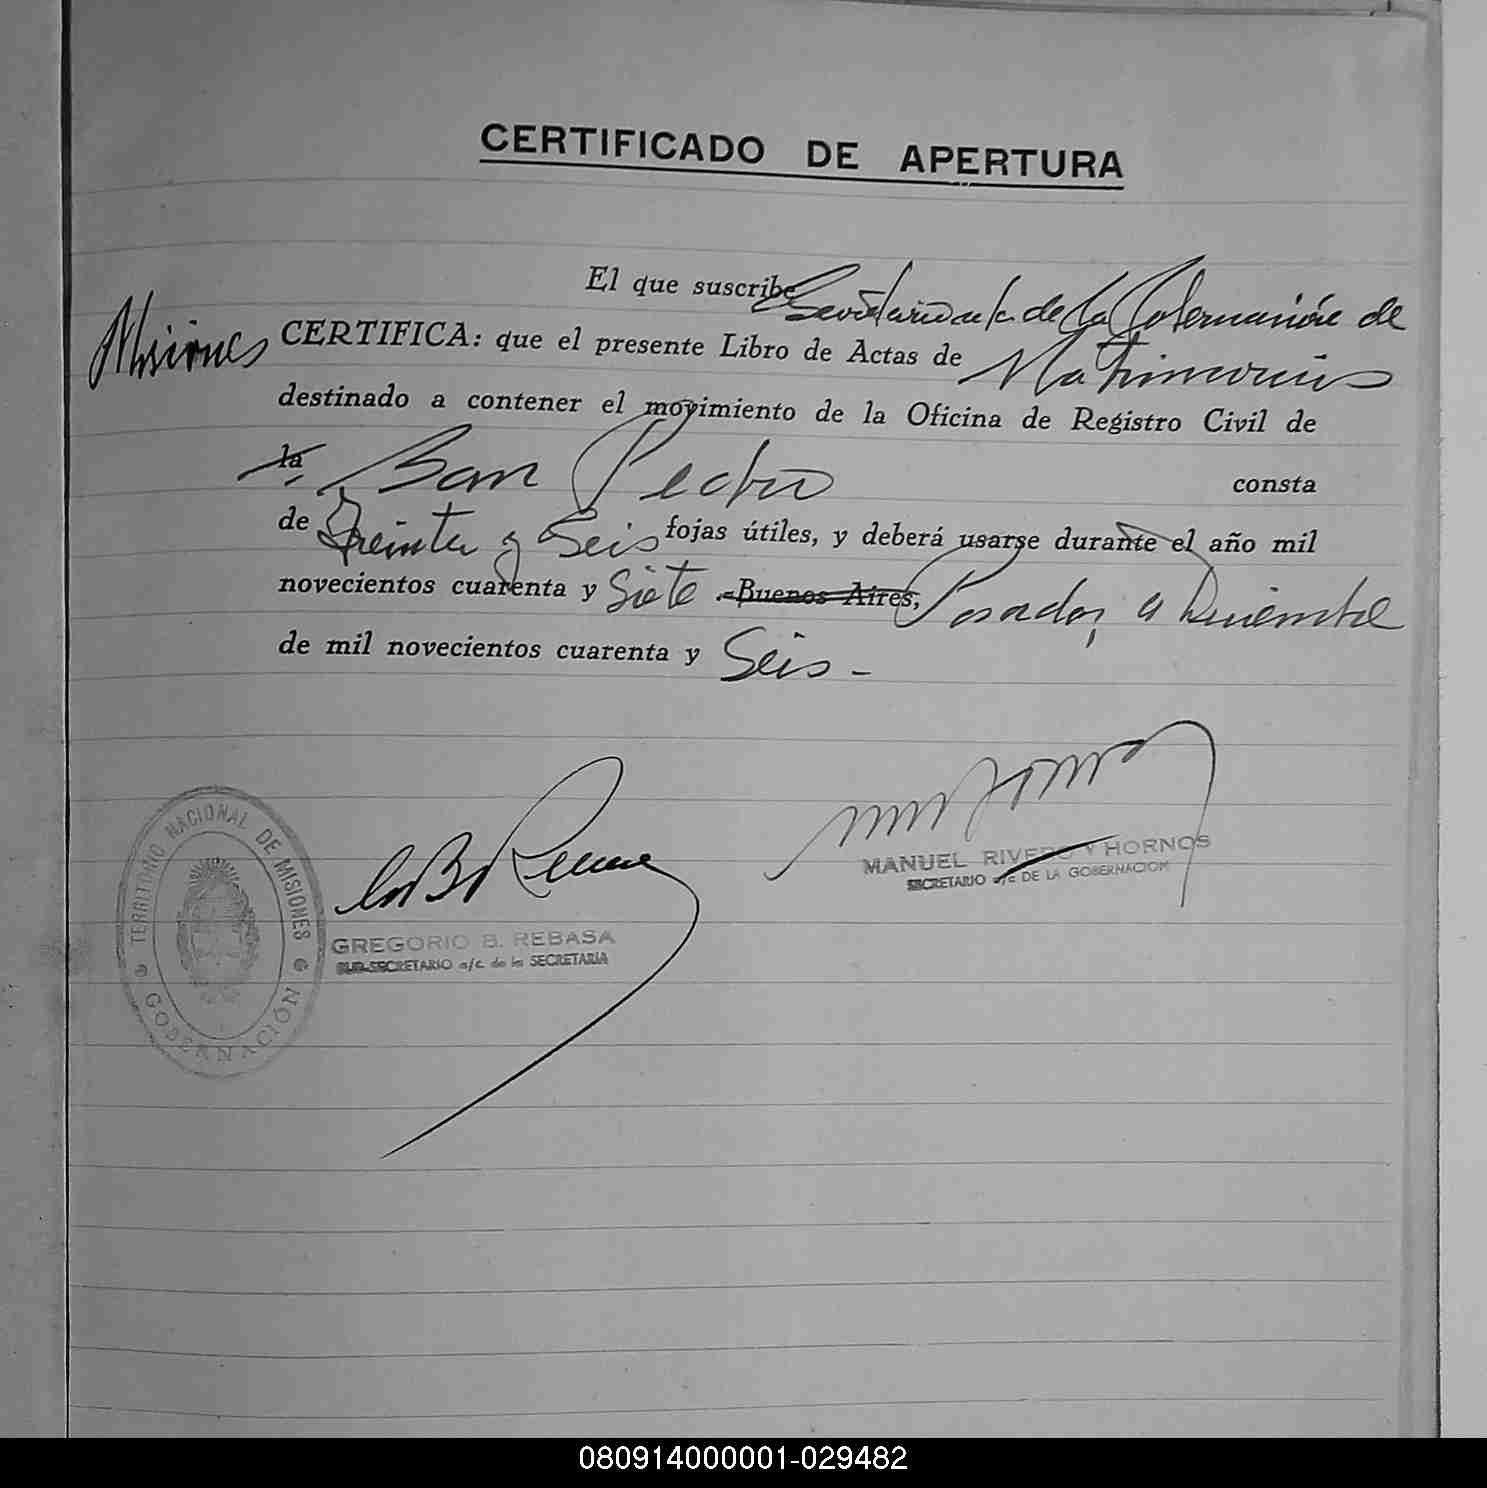 CERTIFICADO DE APERTURA
El que suscribe Secretario de la Gobernación de
Misiones CERTIFICA: que el presente Libro de Actas de Matrimonios
destinado a contener el movimiento de la Oficina de Registro Civil de
la San Pedro consta
de Treinta y Seis fojas útiles, y deberá usarse durante el año mil
novecientos cuarenta y Siete .-Buenos Aires, Posadas, Diciembre
de mil novecientos cuarenta y Seis -
TERRITORIO NACIONAL DE MISIONES
GOBERNACIÓN
GREGORIO B. REBASA
SUB-SECRETARIO a/c. de la SECRETARIA
MANUEL RIVERO Y HORNOS
SECRETARIO a/c DE LA GOBERNACION
080914000001-029482